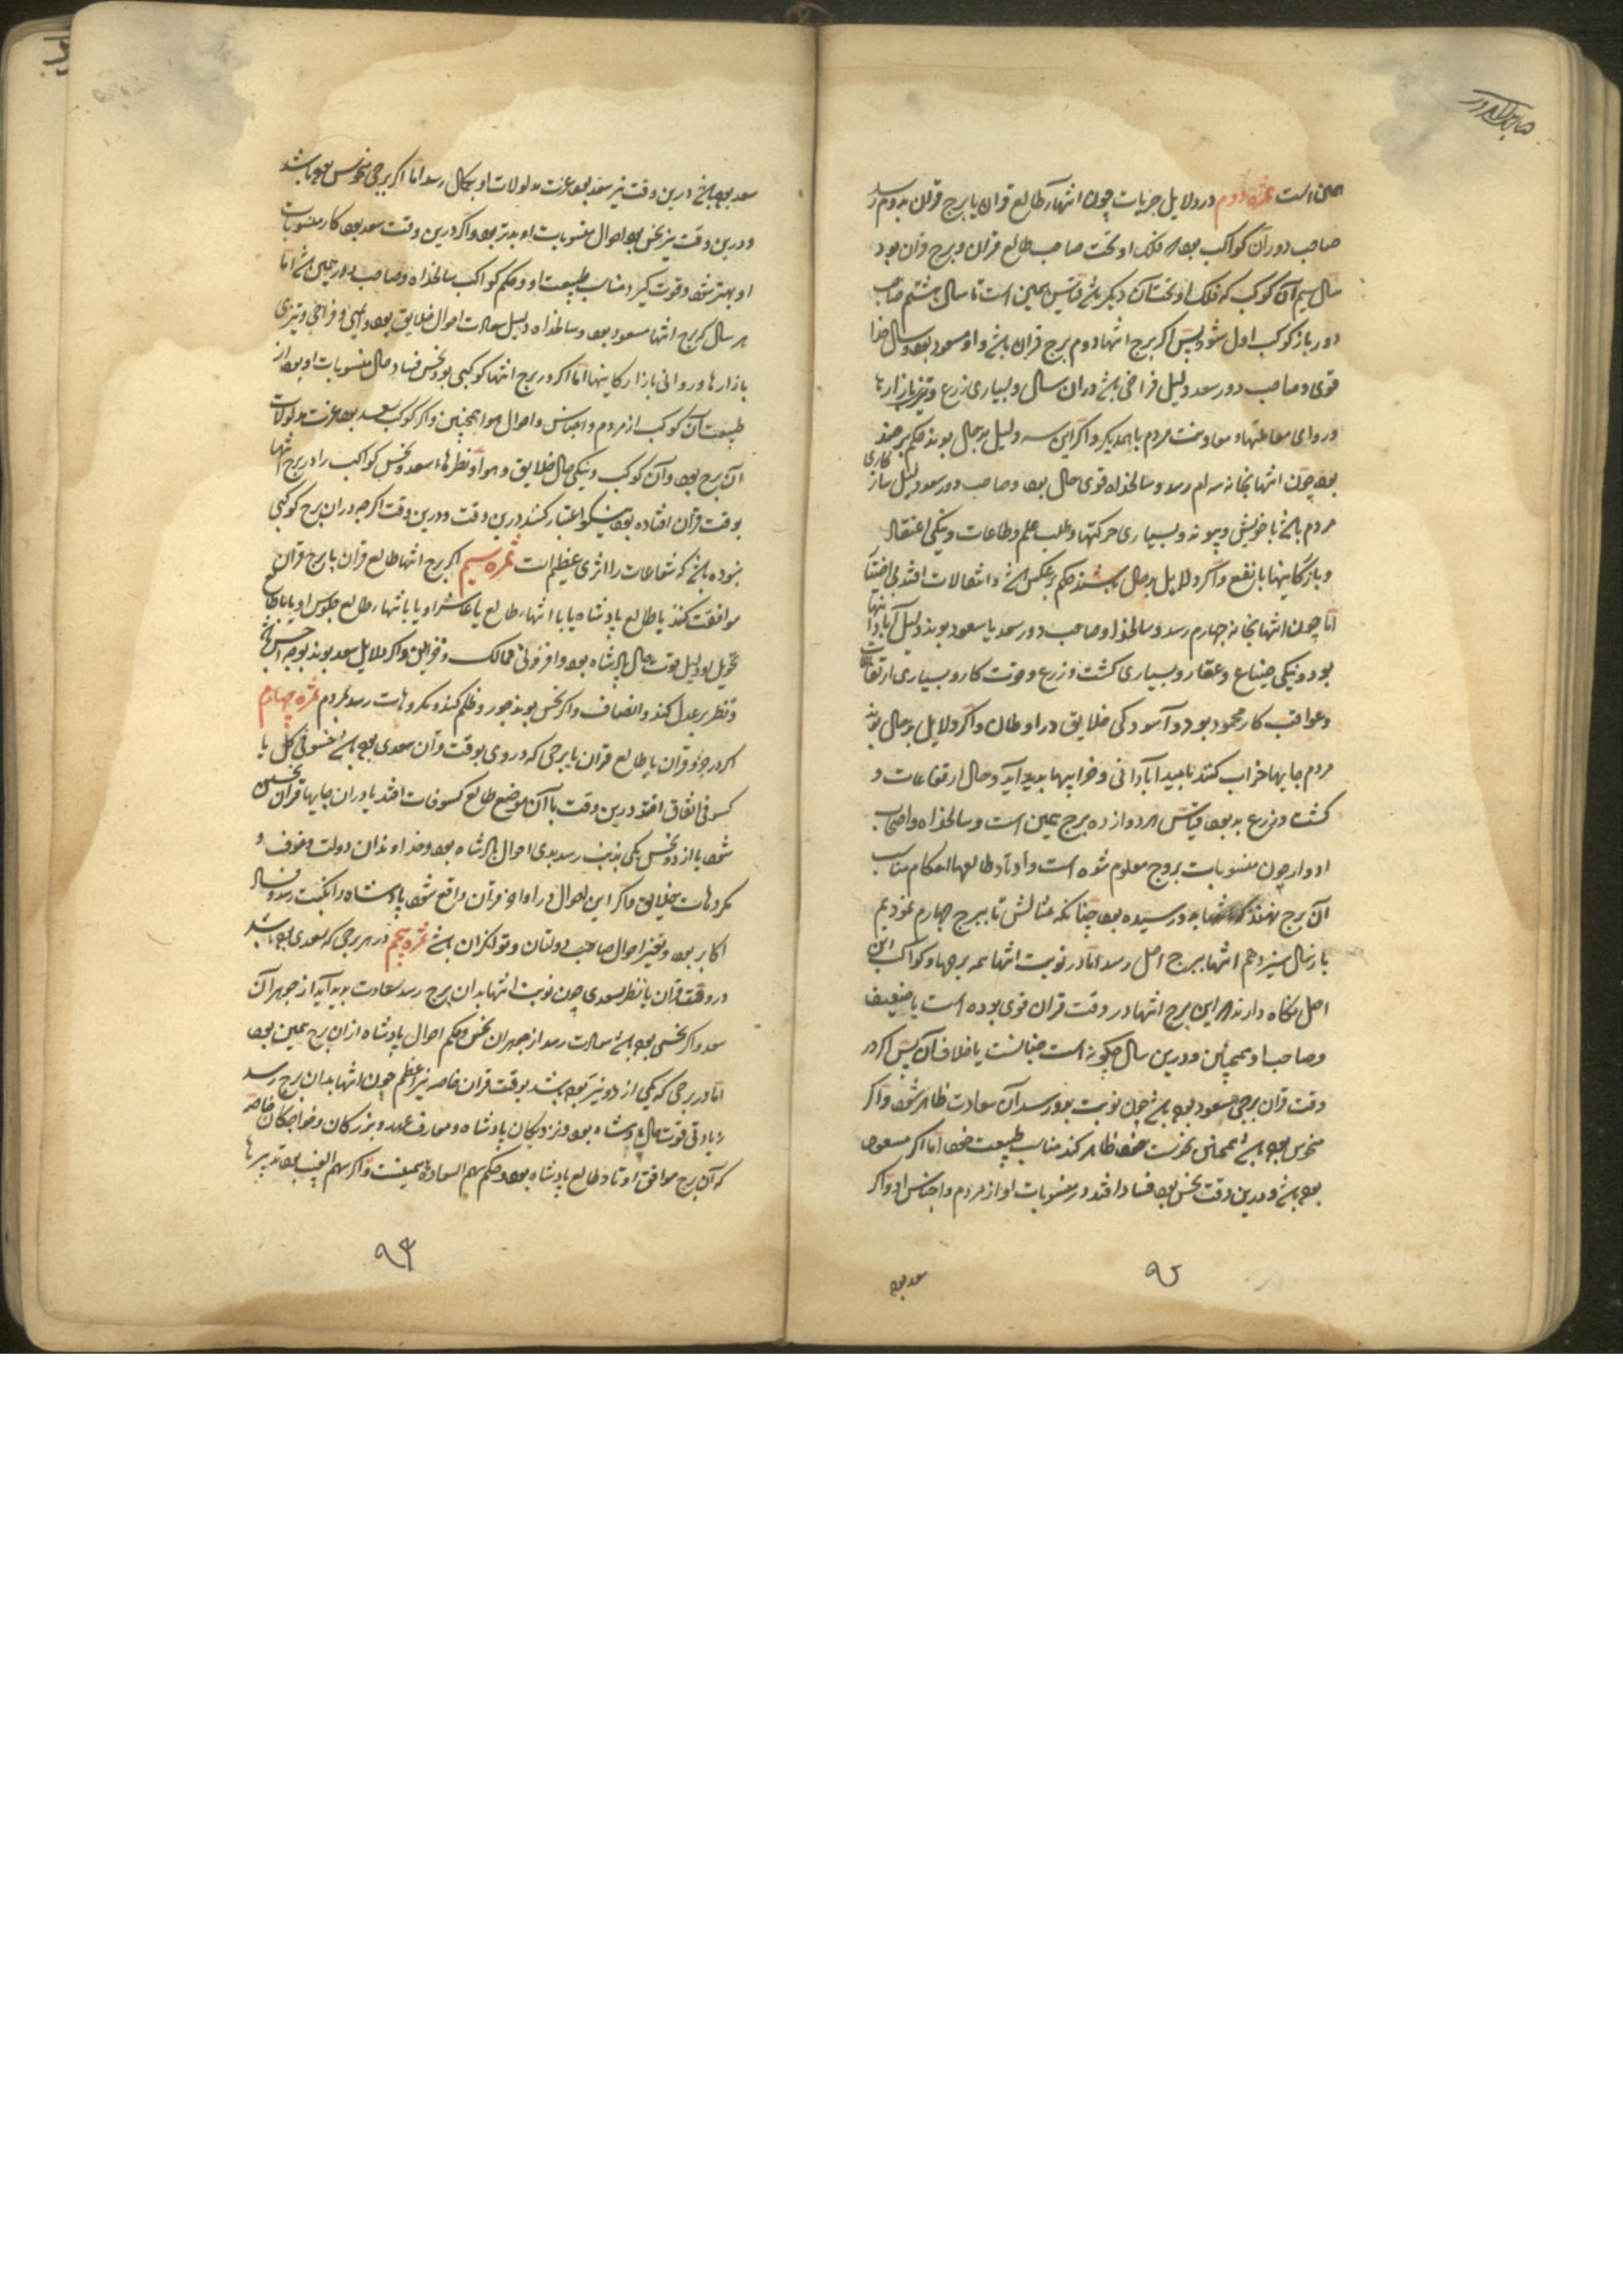 همین است ثمره دوم در دلایل جزیات چون انتهاء طالع قران یا برج قران بدوم رسد
صاحب دور آن کواکب بود که فلک او تحت صاحب طالع قران و برج قران بود
سال سیم آن کوکب که فلک او تحت آن دیگر باشد قیاس همین است تا سال هشتم صاحب
دور باز کوکب اول شود پس اگر برج انتها دوم برج قران باشد و او مسعود بود و سالخدا
قوی و صاحب دور سعد دلیل فراخی باشد در آن سال و بسیاری زرع و تیزی بازارها
و روایی معاملتها و معاونت مردم با یکدیگر و اگر این سه دلیل بدحال بوند حکم بر ضد
بود چون انتها بخانه سیم رسد و سالخداه قوی حال بود و صاحب دور سعود دلیل سازکاری
مردم باشد با خویش و پیوند و بسیاری حرکتها و طلب علم و طاعات و نیکی اعتقاد
و بازرگانیها با نفع و اگر دلایل بدحال باشند حکم برعکس باشد و انتقالات افتد بی اختیار
اما چون انتها بخانه چهارم رسد و سالخدا و صاحب دور سعد یا مسعود بوند دلیل آبادانیها
بود و نیکی ضیاع و عقار و بسیاری کشت و زرع و قوت کار و بسیاری ارتفاعات
و عواقب کار محمود بود و آسودگی خلایق در اوطان و اگر دلایل بدحال بوند
مردم جایها خراب کنند بامید آبادانی و خرابیها پدید آید و حال ارتفاعات و
کشت و زرع بد بود قیاس هر دوازده برج همین است و سالخداه و اصحاب
ادوار چون منسوبات بروج معلوم شده است و اوتاد طالعها احکام مناسب
آن برج نهند که انتها بدو رسیده بود چنانکه مثالش تا ببرج چهارم نمودیم
باز سال سیزدهم انتها ببرج اصل رسد اما در نوبت انتها همه برجها و کواکب این
اصل نگاه دارند که این برج انتها در وقت قران قوی بوده است یا ضعیف
و صاحب او همچنین و درین سال چگونه است چنانست یا خلاف آن پس اگر در
وقت قران برجی مسعود بوده باشد چون نوبت بدو رسد آن سعادت ظاهر شود و اگر
منحوس بوده باشد همچنان نحوست خود ظاهر کند مناسب طبیعت خود اما اگر مسعود
بوده باشد و درین وقت نحس بود فساد افتد در منسوبات او از مردم و اجناس او و اگر
سعد بود
۹۲
سعد بوده باشد درین وقت نیز سعد بود عزت مدلولات او بکمال رسد اما اگر برجی منحوس بوده باشد
و درین وقت نیز نحس بود احوال منسوبات او بدتر بود و اگر درین وقت سعد بود کار منسوبات
او بهتر شود و قوت گیرد مناسب طبیعت او و حکم کواکب سالخداه و صاحب دور همین باشد اما
هر سال که برج انتها مسعود بود و سالخداه دلیل سعادت احوال خلایق بود و ایمنی و فراخی و تیزی
بازارها و روانی بازارگانیها اما اگر در برج انتها کوکبی بود نحس فساد حال منسوبات او بود از
طبیعت آن کوکب از مردم و اجناس و احوال هوا همچنین و اگر کوکب سعد بود عزت مدلولات
آن برج بود و آن کوکب و نیکی حال خلایق و هوا و نظرهاء سعد و نحس کواکب را در برج انتها
بوقت قران افتاده بود نیکو اعتبار کنند درین وقت و درین وقت اگر چه در آن برج کوکبی
نبوده باشد که شعاعات را اثری عظیم است ثمره سیم اگر برج انتها طالع قران یا برج قران
موافقت کند با طالع پادشاه یا با انتهاء طالع یا عاشر او یا با انتهاء طالع جلوس او یا با طالع
تحویل او دلیل قوت حال پادشاه بود و افزونی ممالک و خزاین و اگر دلایل سعد بوند بوجه احسن باشد
و نظر بر عدل کند و انصاف و اگر نحس بوند جور و ظلم کند و مکروهات رسد بمردم ثمره چهارم
اگر در جزو قران یا طالع قران یا برجی که در وی بوقت قران سعدی بوده باشد خسوفی کلی یا
کسوفی اتفاق افتد درین وقت یا آن موضع طالع کسوفات افتد یا در آن جایها قران نحسین
شود یا از دو نحس یکی بذنب رسد بدی احوال پادشاه بود و خداوندان دولت و خوف و
مکروهات خلایق و اگر این احوال در اواخر قران واقع شود پادشاه را نکبت رسد و فساد
اکابر بود و تغیر احوال صاحب دولتان و توانگران باشد ثمره پنجم در هر برجی که سعدی بوده باشد
در وقت قران یا نظر سعدی چون نوبت انتها بدان برج رسد سعادت پدید آید از جوهر آن
سعد و اگر نحسی بوده باشد مضرت رسد از جوهر آن نحس و حکم احوال پادشاه از آن برج همین بود
اما در برجی که یکی از دو نیر بوده باشد بوقت قران خاصه نیر اعظم چون انتها بدان برج رسد
زیادتی قوت حال پادشاه بود و نزدیکان پادشاه و معارف عهد و بزرگان و خواجگان خاصه
که آن برج موافق اوتاد طالع پادشاه بود و حکم سهم السعادة همینست و اگر سهم الغیب بود تدبیرها
۹۳